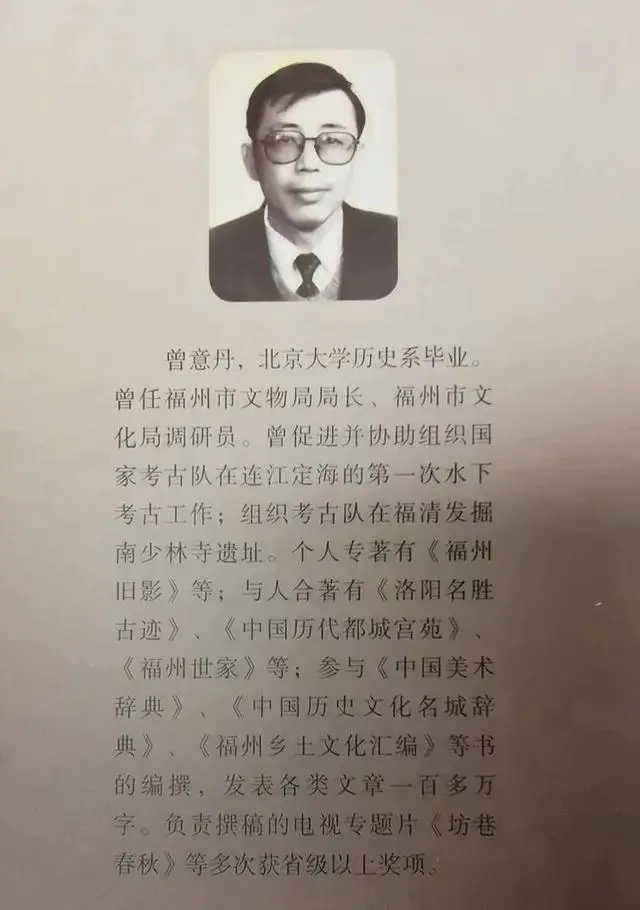 曾意丹，北京大学历史系毕业。
曾任福州市文物局局长、福州市文
化局调研员。曾促进并协助组织国
家考古队在连江定海的第一次水下
考古工作；组织考古队在福清发掘
南少林寺遗址。个人专著有《福州
旧影》等；与人合著有《洛阳名胜
古迹》、《中国历代都城宫苑》、
《福州世家》等；参与《中国美术
辞典》、《中国历史文化名城辞
典》、《福州乡土文化汇编》等书
的编撰，发表各类文章一百多万
字。负责撰稿的电视专题片《坊巷
春秋》等多次获省级以上奖项。